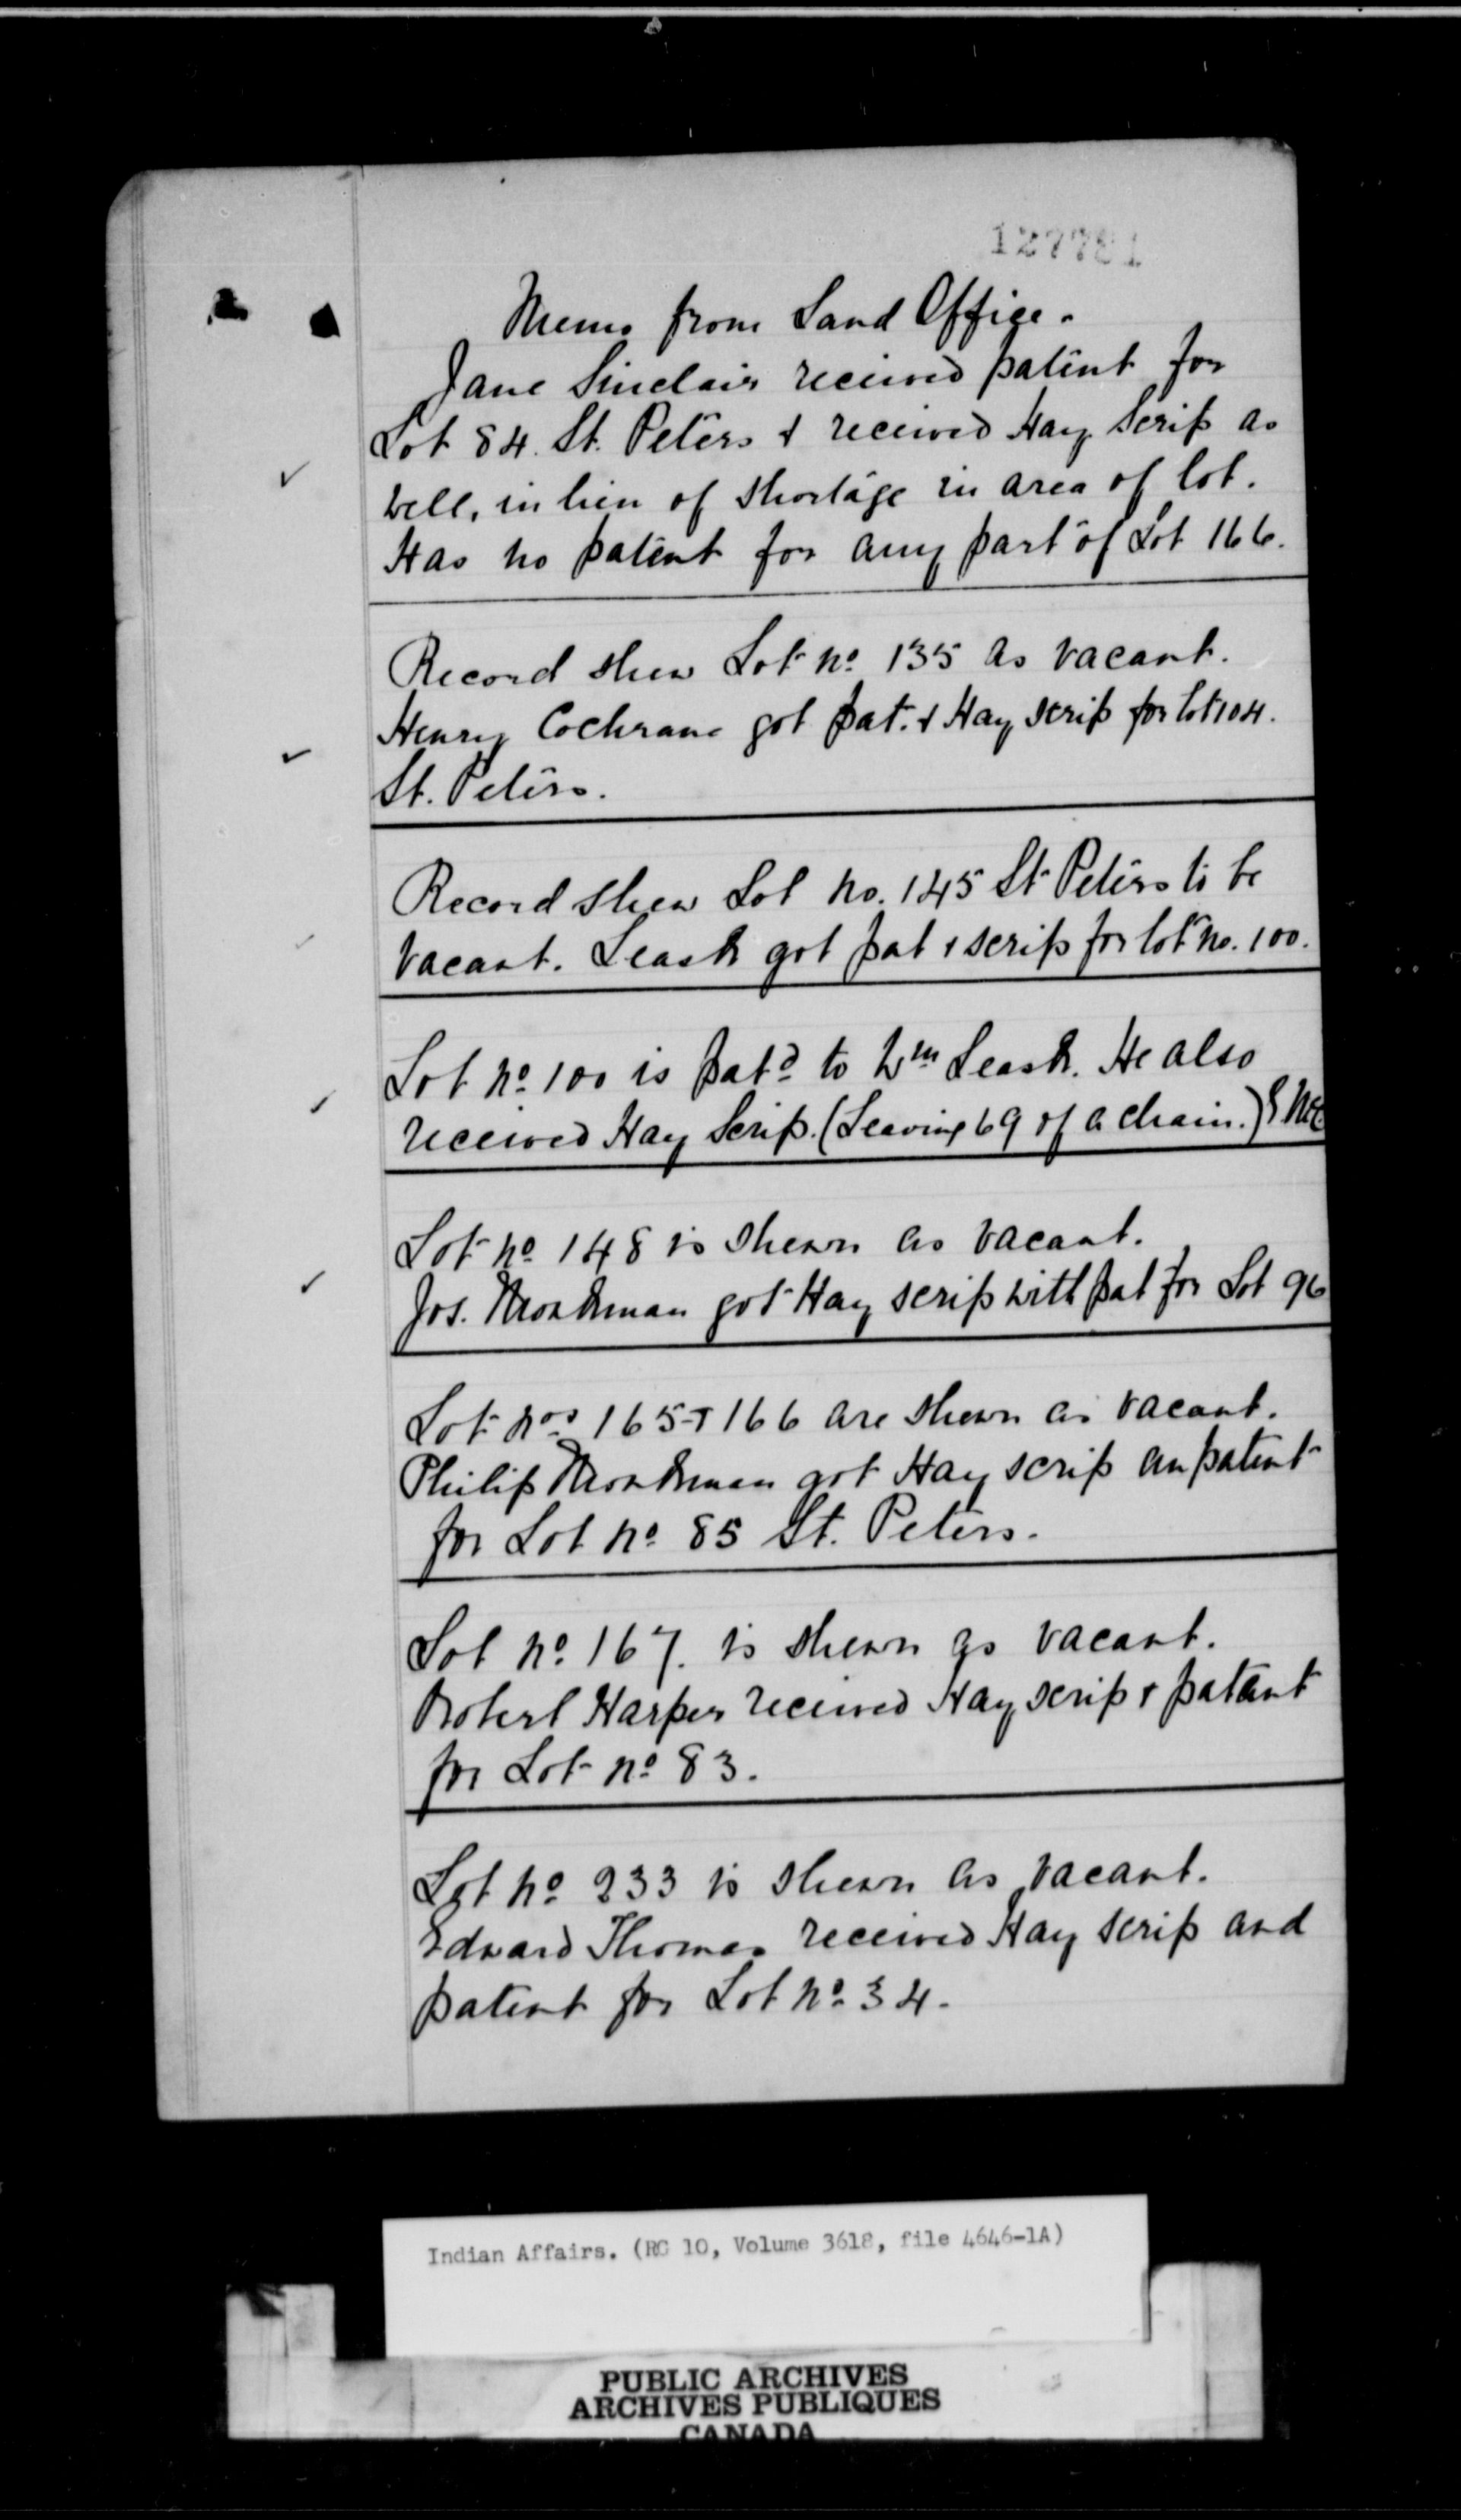 127781
Memo from Land Office.
Jane Sinclair received patent for
Lot 84. St. Peters & received Hay Scrip as
well, in lieu of shortage in area of lot.
Has no patent for any part of Lot 166.
Record shew Lot No 135 as vacant.
Henry Cochrane got pat. & Hay scrip for lot 104.
St. Peters.
Record shew Lot No. 145 St Peters to be
vacant. Leask got pat & scrip for lot No. 100.
Lot No 100 is patd to Wm Leask. He also
received Hay Scrip. (Leaving 69 of a chain.)
Lot No 148 is shewn as vacant.
Jos. Monkman got Hay scrip with pat for Lot 96
Lot Nos 165 & 166 are shewn as vacant.
Philip Monkman got Hay scrip an patent
for Lot No 85 St. Peters.
Lot No 167. is shewn as vacant.
Robert Harper received Hay scrip & patent
for Lot No 83.
Lot No 233 is shewn as vacant.
Edward Thomas received Hay scrip and
patent for Lot No 34.
Indian Affairs. (RG 10, Volume 3618, file 4646-1A)
PUBLIC ARCHIVES
ARCHIVES PUBLIQUES
CANADA